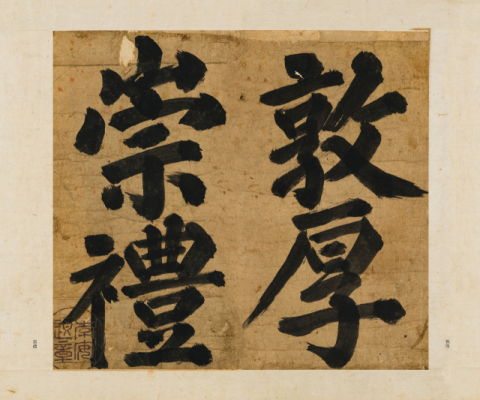 敦厚
崇禮